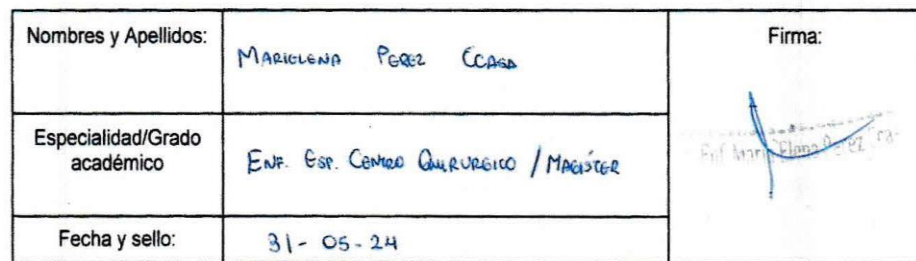 Nombres y Apellidos:
MARIELENA PEREZ CCASA
Firma:
Especialidad/Grado
académico
ENF. ESP. CENTRO QUIRURGICO / MAGÍSTER
Enf. Maria Elena
Fecha y sello:
31 - 05 - 24